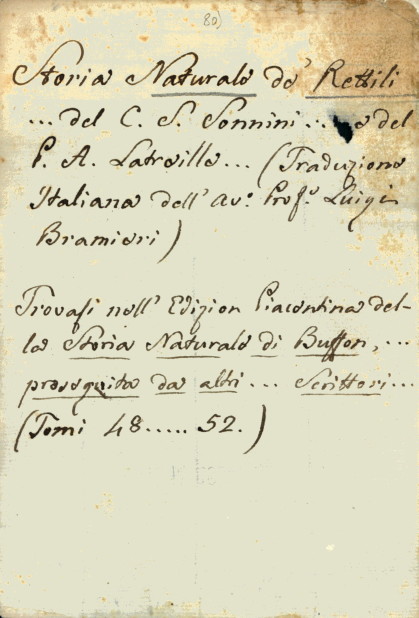 80)
Storia Naturale de' Rettili
... del C. S. Sonnini ... e del
P. A. Latreille ... (Traduzione
Italiana dell' av.o Prof.e Luigi
Bramieri)
Trovasi nell' Edizion Piacentina del-
la Storia Naturale di Buffon, ...
proseguita da altri ... Scrittori ...
(Tomi 48 ..... 52.)